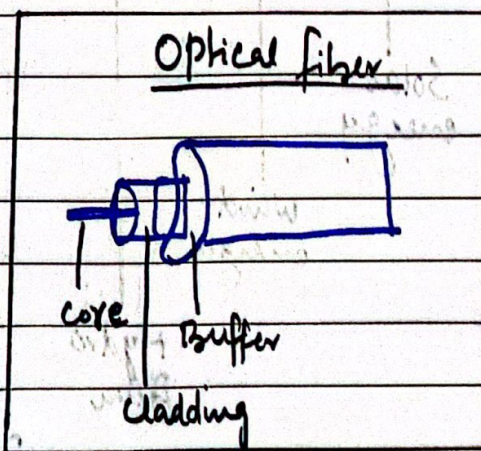 Optical fiber
core
Buffer
cladding